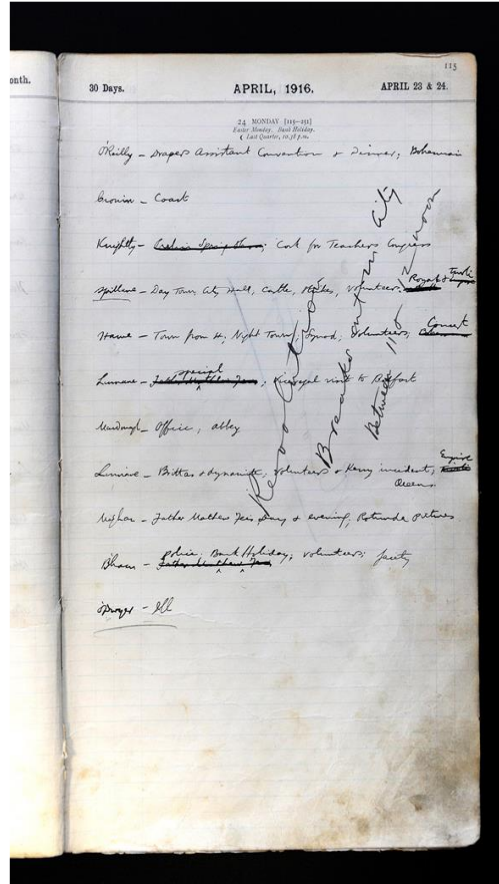 115
onth.
30 Days.
APRIL, 1916.
APRIL 23 & 24.
24 MONDAY [115-251]
Easter Monday. Bank Holiday.
Last Quarter, 10.38 p.m.
O'Reilly - Drapers Assistant Convention & Dinner; Bohemian
Cronin - Court
Knightly - Cork for Teachers Congress
Spillane - Day Town, City Hall, Castle, Strikes, Volunteers, Royal & Tivoli
Hawe - Town from 11; Night Town; Squad; Volunteers; Concert
Linnane - special; Viceregal visit to Belfast
Office, Abbey
Linnane - Brittas & dynamite, Volunteers & Kerry incidents; Empire
Queens
Father Mathew Feis Day & evening; Rotunda Pictures
police; Bank Holiday; volunteers;
O'Dwyer - Ill
Revolution
Breaks out in City
Between 11 & 12 noon